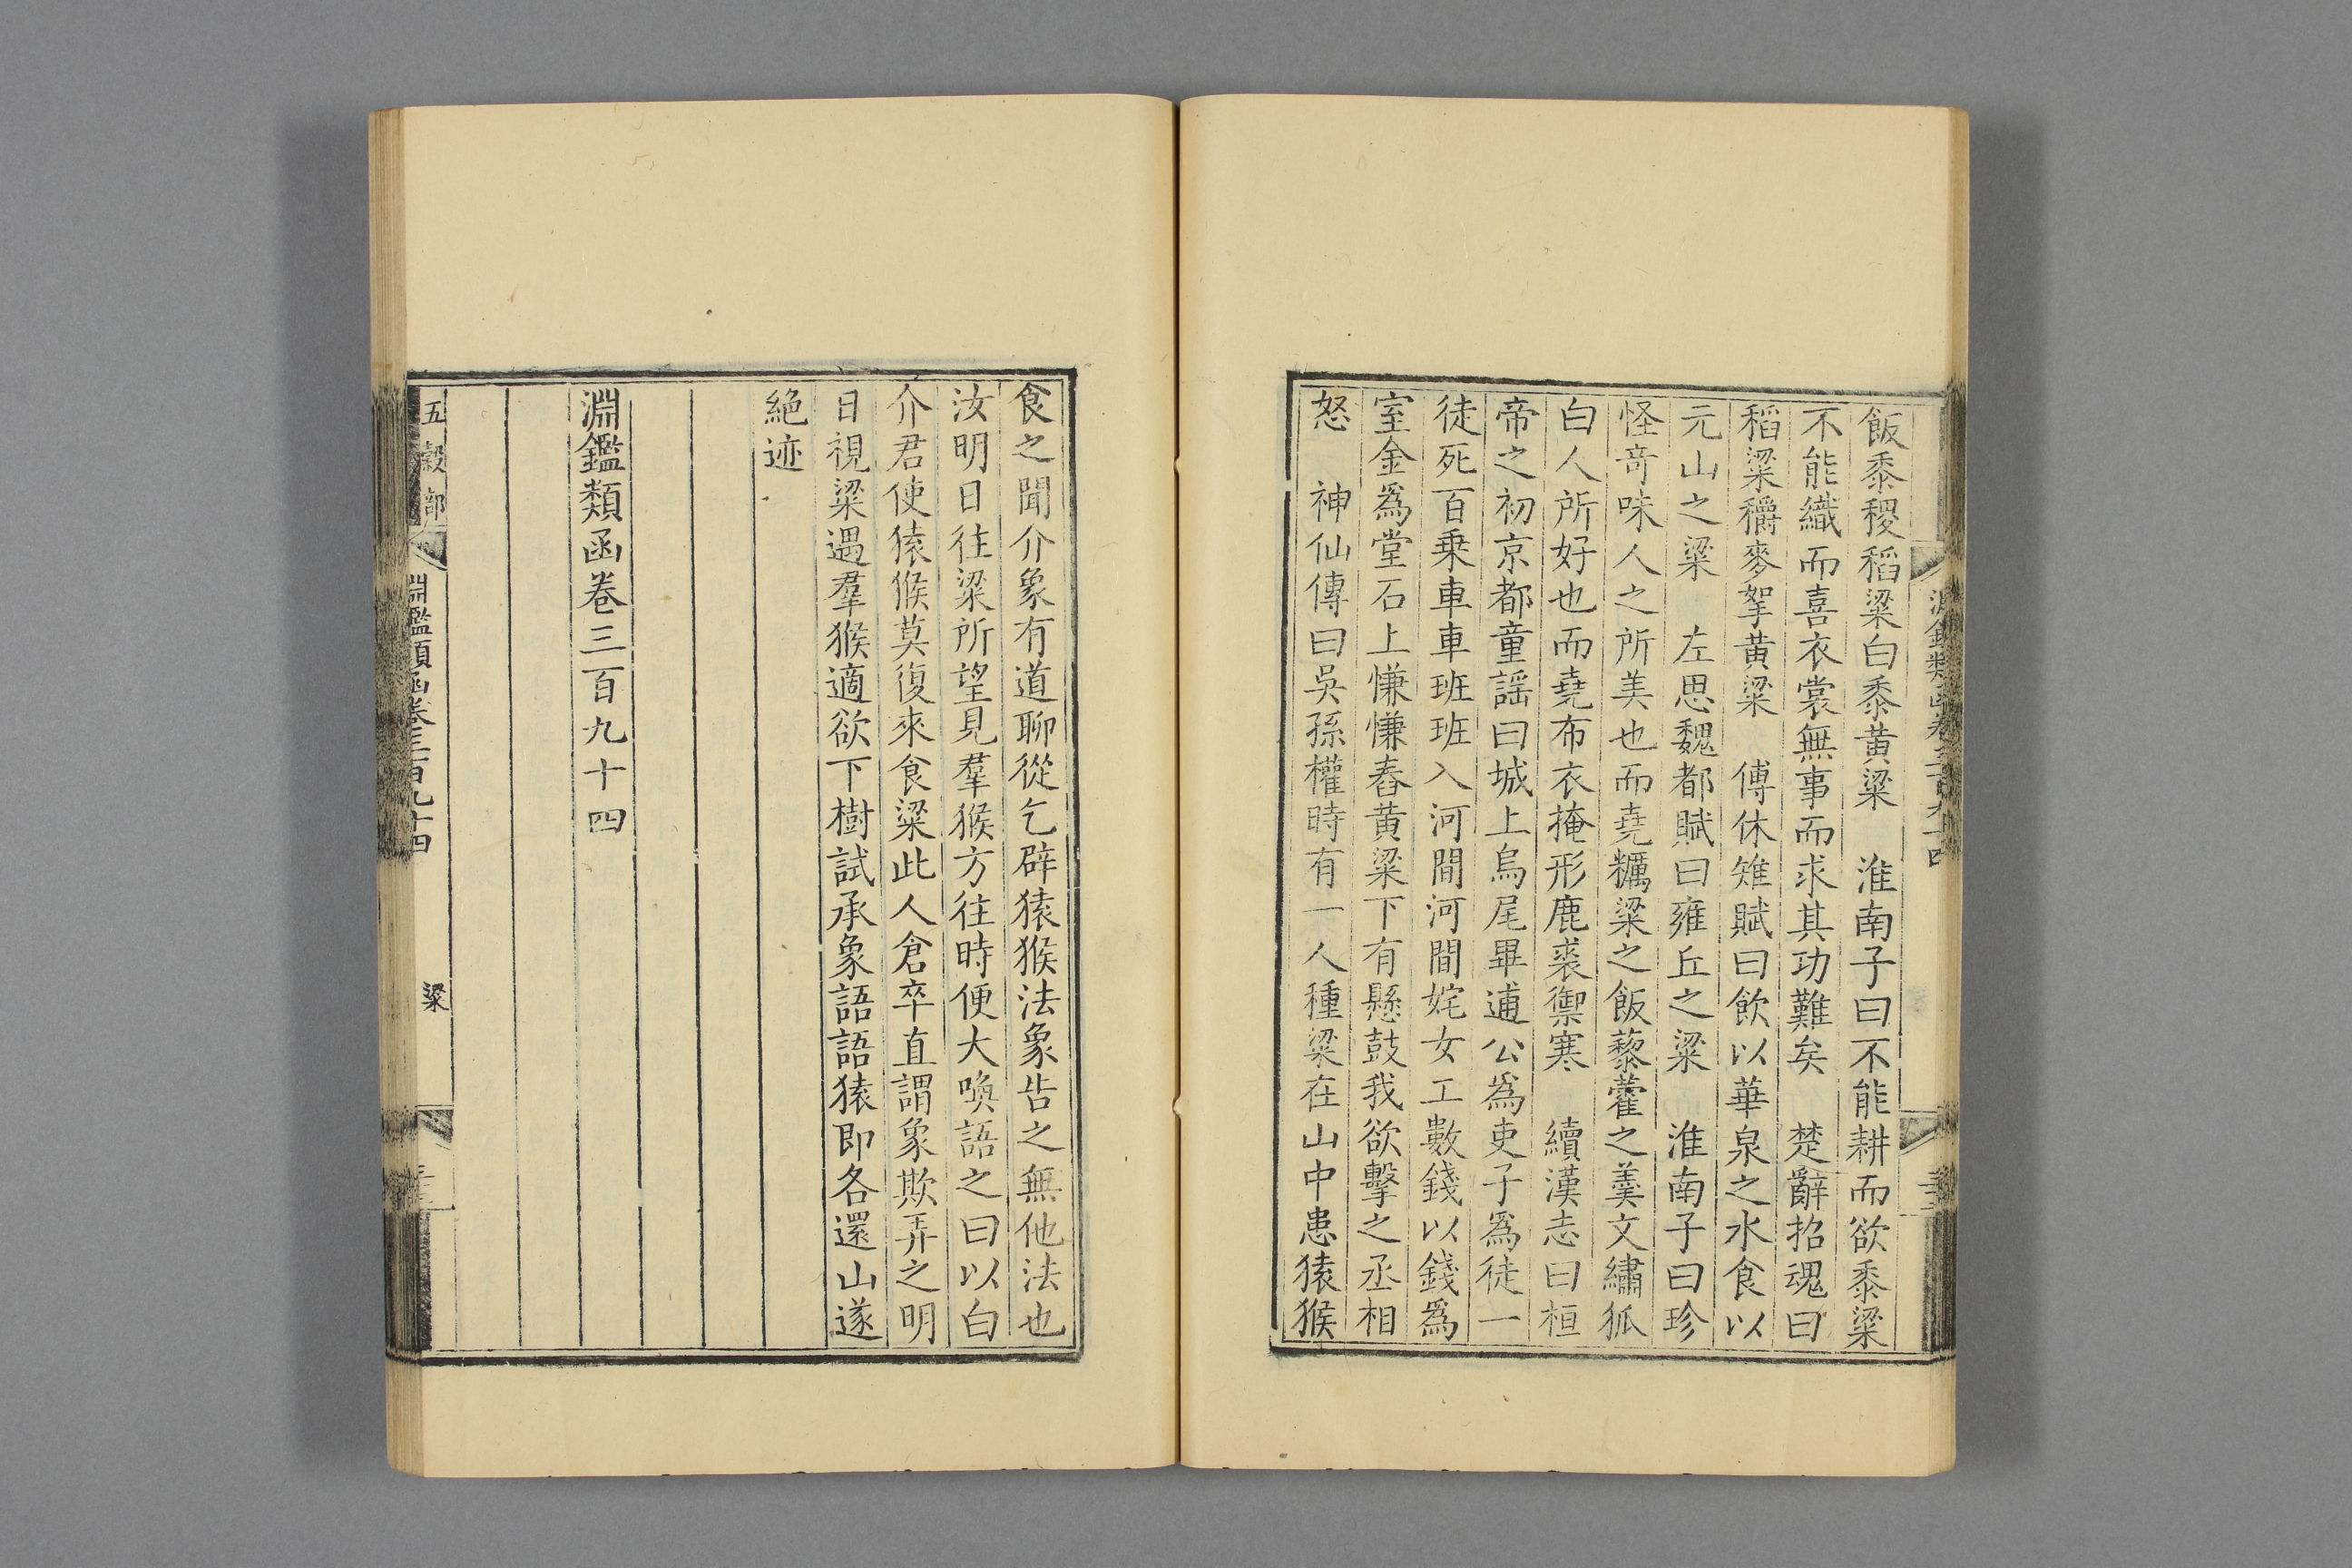 飯黍稷稻粱白黍黄粱　淮南子曰不能耕而欲黍粱
不能織而喜衣裳無事而求其功難矣　楚辭招魂曰
稻粱穱麥挐黄粱　傅休雉賦曰飲以華泉之水食以
元山之粱　左思魏都賦曰雍丘之粱　淮南子曰珍
怪奇味人之所美也而堯糲粱之飯藜藿之羹文繡狐
白人所好也而堯布衣掩形鹿裘禦寒　續漢志曰桓
帝之初京都童謡曰城上烏尾畢逋公爲吏子爲徒一
徒死百乗車車班班入河間河間姹女工數錢以錢爲
室金爲堂石上慊慊舂黄粱下有懸鼓我欲擊之丞相
怒　神仙傳曰吳孫權時有一人種粱在山中患猿猴
食之聞介象有道聊從乞辟猿猴法象告之無他法也
汝明日往粱所望見羣猴方往時便大喚語之曰以白
介君使猿猴莫復來食粱此人倉卒直謂象欺弄之明
日視粱遇羣猴適欲下樹試承象語語猿即各還山遂
絶迹
淵鑑類函卷三百九十四
五穀部
淵鑑類函卷三百九十四
粱